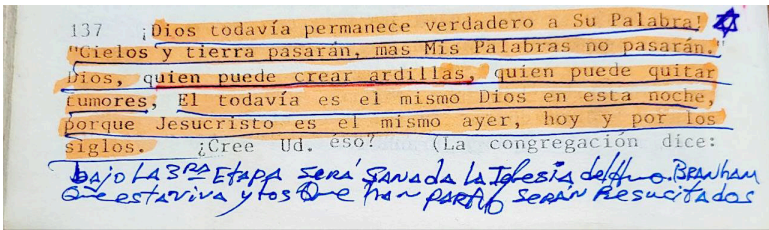 137 ¡Dios todavía permanece verdadero a Su Palabra!
"Cielos y tierra pasarán, mas Mis Palabras no pasarán."
Dios, quien puede crear ardillas, quien puede quitar
tumores, El todavía es el mismo Dios en esta noche,
porque Jesucristo es el mismo ayer, hoy y por los
siglos. ¿Cree Ud. éso? (La congregación dice:
bajo LA 3RA Etapa SERÁ SANADA LA Iglesia del Hno. BRANHAM
Que esta viva y los Que han partido SERÁN Resucitados